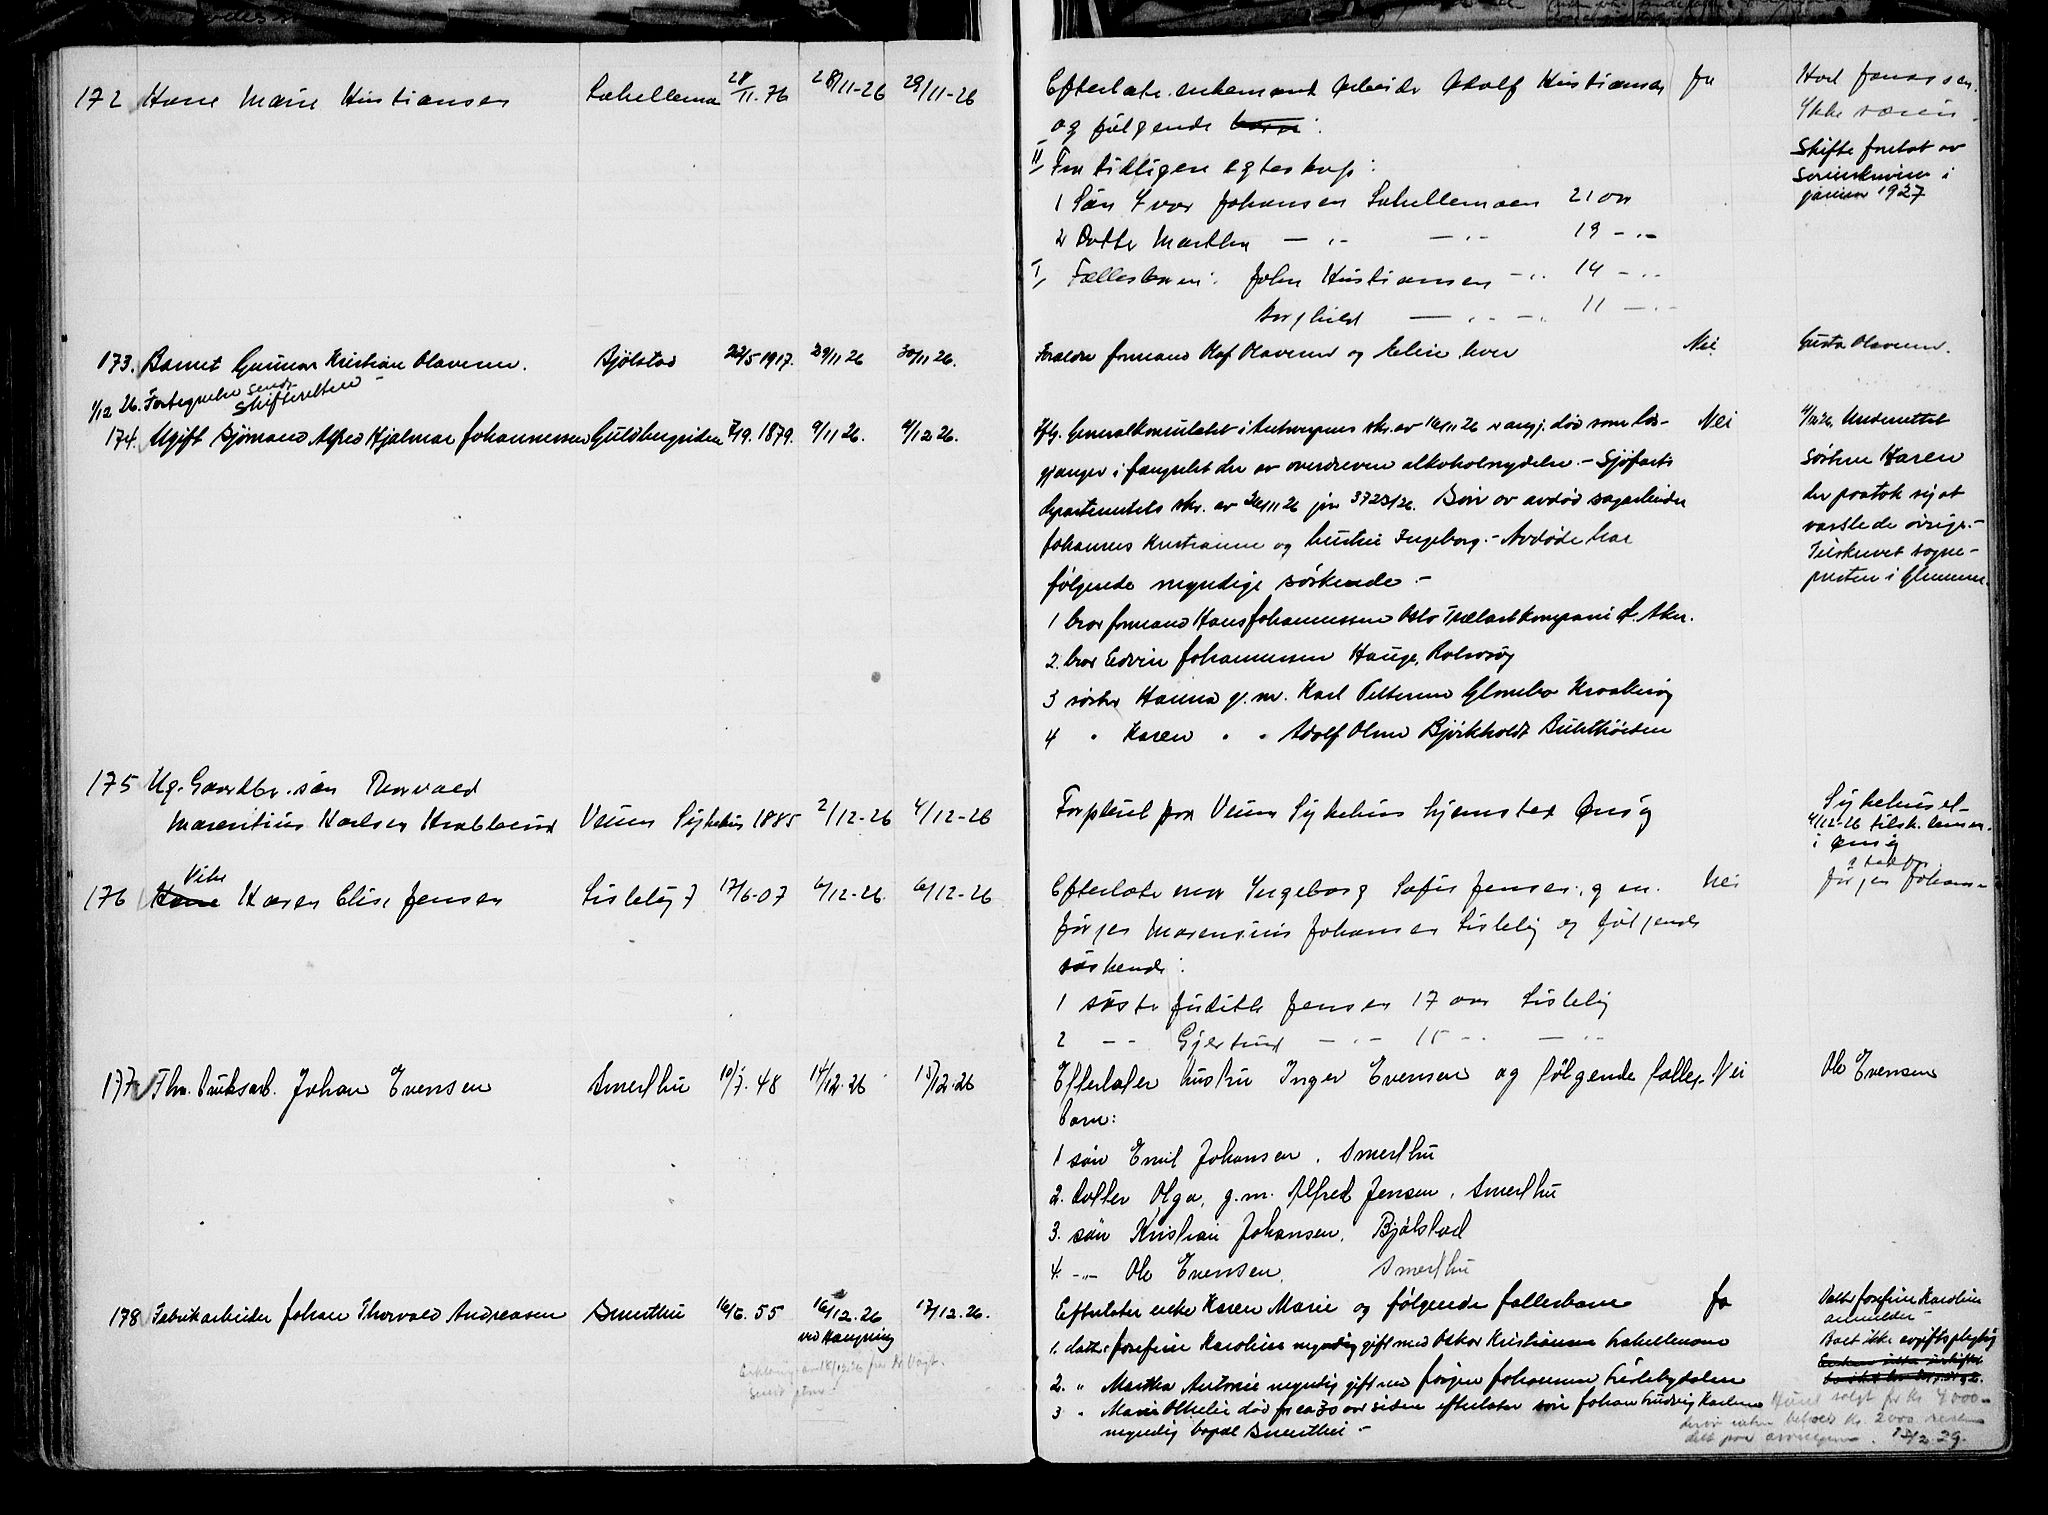 172 Hanne Marie Kristiansen Lahellemoen 28/11-76 28/11-26 29/11-26
Efterlater enkemand Arbeider Adolf Kristiansen ja
og følgende barn:
II/ Fra tidligere egteskap:
1 Søn Ivar Johansen Lahellemoen 21 aar
2 Datter Marthea — „ — — „ — 19 — „ —
I/ Fællesbarn: John Kristiansen — „ 14 — „
Borghild — „ — „ 11 — „
Ikke
Skifte foretat av
Sorenskriveren i
januar 1927
173. Barnet Gunnar Kristian Olavesen. Bjølstad 22/5 1917. 29/11 26 30/11 26.
Forældre formand Olaf Olavesen og hver Nei Gusta Olavesen.
1/12 26. Fortegnelse sendt
Skifteretten —
174. Ugift Sjømand Alfred Hjalmar Johannessen Guldbergsiden 7/9. 1879. 9/11 26. 4/12 26.
Iflg. Generalkonsulatet i Antwerpens skr. av 16/11 26 er angj. død som løs-
gjænger i fængslet der av overdreven alkoholnydelse. – Sjøfarts
departementets skr. av 26/11 26 jnr 3723/26. Søn av avdød sagarbeider
Johannes Kristiansen og hustru Ingeborg. – Avdøde har
følgende myndige søskende –
1 bror formand Hans Johannessen Oslo Trælastkompani Ø. Aker.
2. bror Edvin Johannessen Hauge, Rolvsøy
3 søster Hanna g. m. Karl Pettersen Glombo Kraakerøy
4 „ Karen „ „ Adolf Olsen Bjørkholdt
Nei
4/12 26. Underrettet
søsteren Karen
der paatok sig at
varsle de øvrige. –
Tilskrevet sogne-
presten i Glemmen.
175 Ug. Gaardbr. søn Thorvald
Mauritius Karlsen Krabberød Veum Sykehus 1885 2/12-26 4/12-26
Forpleiet paa Veum Sykehus hjemsted Onsøy
Sykehuset
4/12-26 tilsk. lensm.
i Onsøy
176 Hanne Vike Karen Elise Jensen Lisleby 7 17/6-07 6/12-26 6/12-26
Efterlater mor Ingeborg Sofie Jensen, g. m.
Jørgen Marensius Johansen Lisleby og følgende
søskende:
1 søster Judith Jensen 17 aar Lisleby
2 — — Gjertrud — „ — 15 — „ — „
Nei
Jørgen Johan-
177 Fhv. Bruksarb. Johan Evensen Smerthu 10/7. 48 14/12. 26 15/12. 26
Efterlater hustru Inger Evensen og følgende felles- Nei Ole Evensen
barn:
1 søn Emil Johansen, Smerthu
2. datter Olga, g. m. Alfred Jensen, Smerthu
3. søn Kristian Johansen, Bjølstad
4. –„– Ole Evensen, Smerthu
178 Fabrikarbeider Johan Thorvald Andreasen Smerthu 16/6. 55 16/12. 26 17/12. 26.
ved Hængning
Efterlater enke Karen Marie og følgende fellesbarn ja
1. datter Josefine Karoline myndig gift med Oskar Kristiansen Lahellemoen
2. „ Martha Antonie myndig gift med Jørgen Johansen Lislebydalen
3 „ Marie Othelie død for ca 30 aar siden efterlater søn Johan Ludvig Karlsen
myndig bopæl Smerthu –
Datter Josefine Karoline
anmelder
Boet ikke avgiftspligtig
Huset solgt for kr. 4000–
derav enken beholdt kr. 2000 resten
delt paa arvingene. 12/2 29.